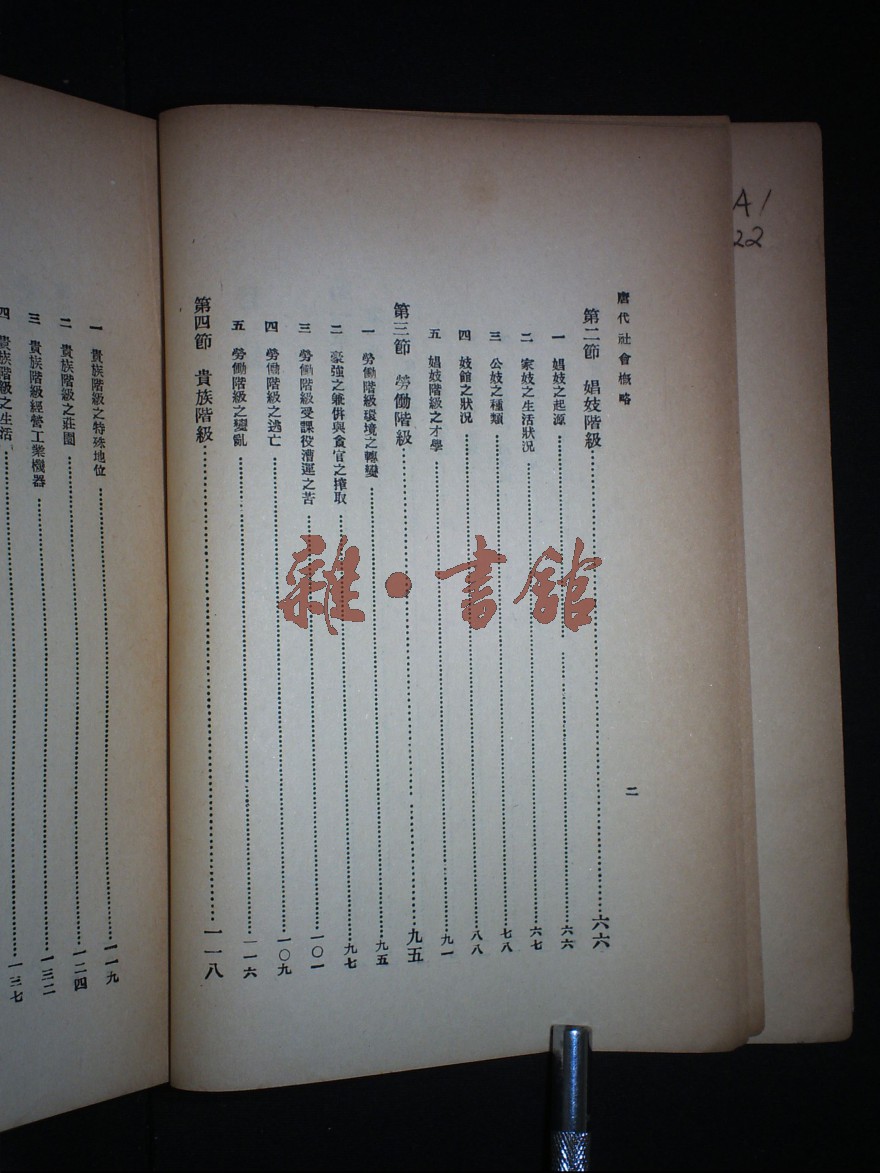 唐代社會概略
二
第二節 娼妓階級……六六
一 娼妓之起源……六六
二 家妓之生活狀況……六七
三 公妓之種類……七八
四 妓館之狀況……八八
五 娼妓階級之才學……九一
第三節 勞働階級……九五
一 勞働階級環境之轉變……九五
二 豪強之兼併與貪官之搾取……九七
三 勞働階級受課役漕運之苦……一〇一
四 勞働階級之逃亡……一〇九
五 勞働階級之變亂……一一六
第四節 貴族階級……一一八
一 貴族階級之特殊地位……一一九
二 貴族階級之莊園……一二四
三 貴族階級經營工業機器……一三二
四 貴族階級之生活……一三七
A1
22
雜·書館